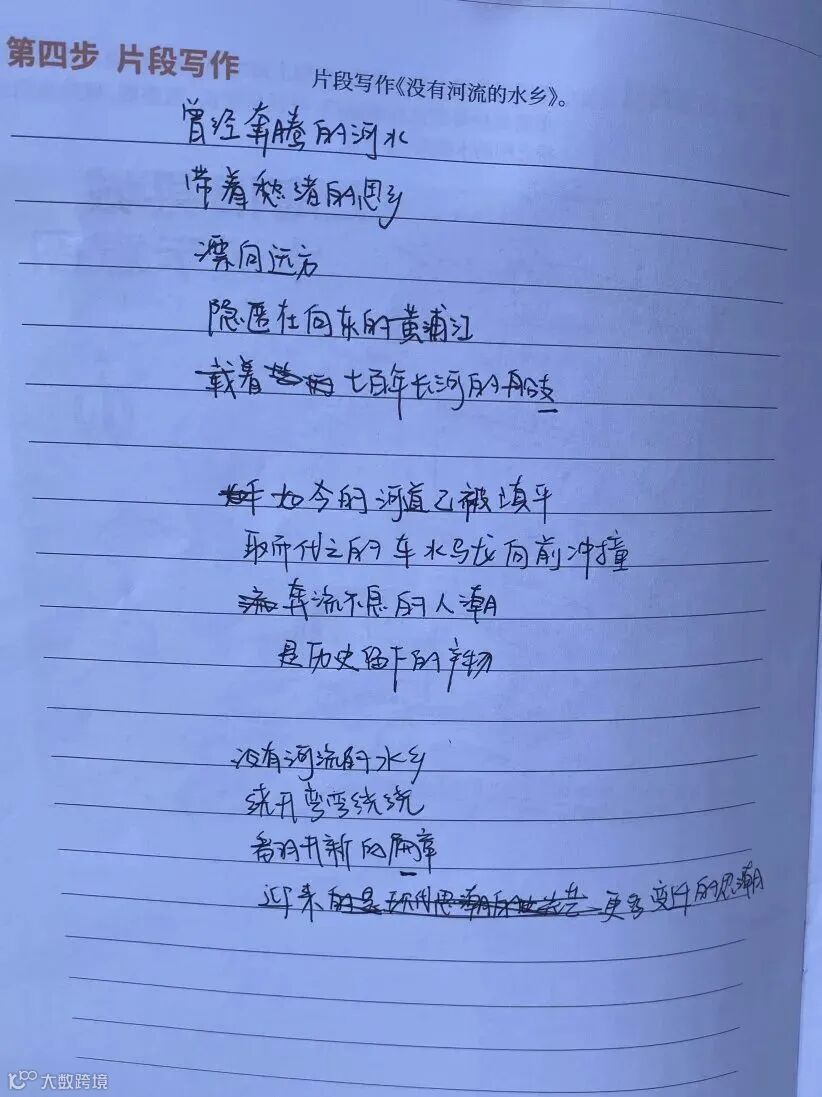 第四步 片段写作
片段写作《没有河流的水乡》。
曾经奔腾的河水
带着愁绪的思乡
漂向远方
隐匿在向东的黄浦江
载着七百年长河的
如今的河道已被填平
取而代之的车水马龙向前冲撞
奔流不息的人潮
是历史留下的产物
没有河流的水乡
绕开弯弯绕绕
翻开新的篇章
迎来的是更多变化的思潮
大数跨境